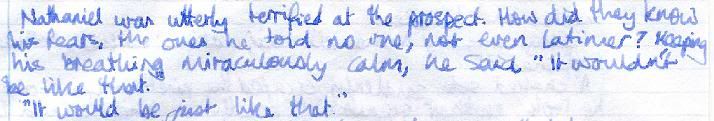 Nathaniel was utterly terrified at the prospect. How did they know
his fears, the ones he told no one, not even Latimer? Keeping
his breathing miraculously calm, he said "It wouldn't
be like that."
"It would be just like that."